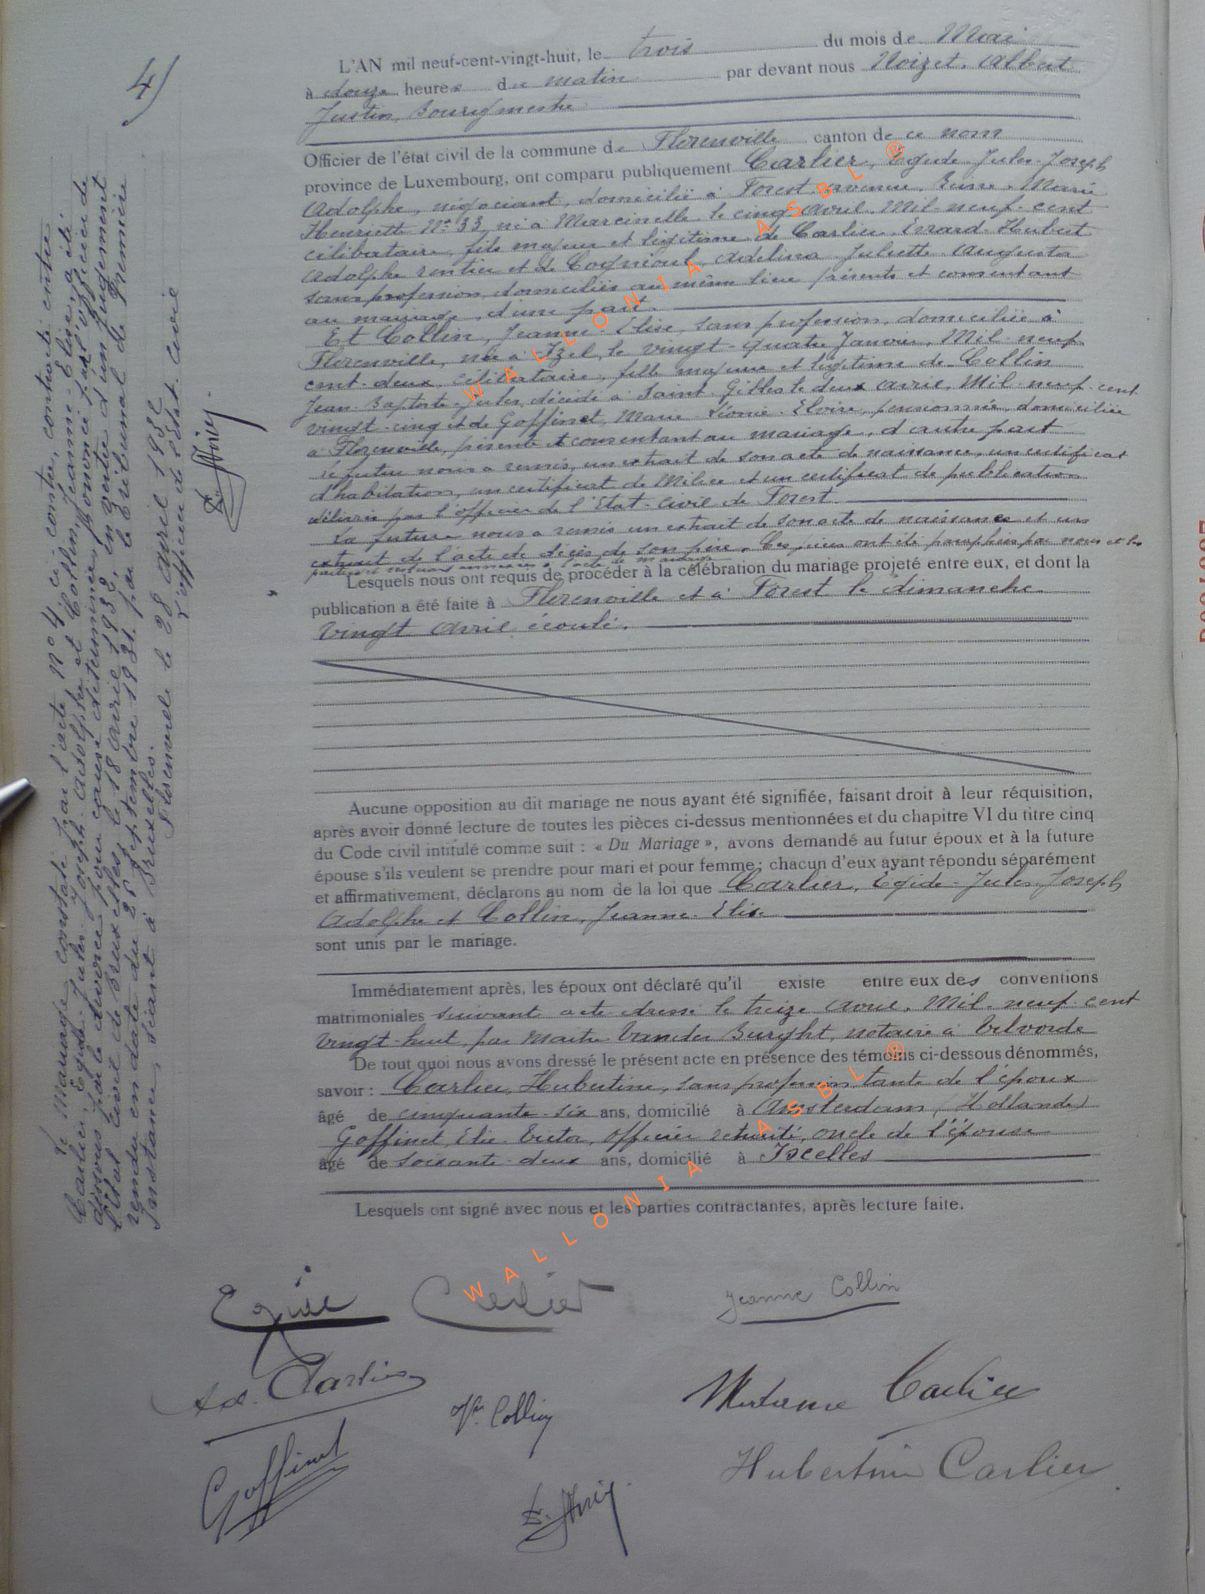 4)
L'AN mil neuf-cent-vingt-huit, le trois du mois de Mai
à douze heures du matin par devant nous Noizet, Albert
Justin, Bourgmestre
Officier de l'état civil de la commune de Florenville canton de ce nom
province de Luxembourg, ont comparu publiquement Carlier, Egide-Jules-Joseph
Adolphe, négociant, domicilié à Forest avenue Reine Marie
Henriette N° 33, né à Marcinelle le cinq avril Mil-neuf-cent
célibataire, fils majeur et légitime de Carlier Erard-Hubert
Adolphe rentier et de Cognioul, Adelina Juliette Augusta
sans profession, domiciliés au même lieu présents et consentant
au mariage, d'une part.
Et Collin, Jeanne-Elise, sans profession, domiciliée à
Florenville, née à Izel, le vingt-quatre Janvier, Mil neuf
cent-deux, célibataire, fille majeure et légitime de Collin
Jean-Baptiste-Jules, décédé à Saint Gilles le deux avril, Mil-neuf-cent
vingt-cinq et de Goffinet, Marie Léonie-Elvire, pensionnée, domiciliée
à Florenville, présente et consentant au mariage, d'autre part
le futur nous a remis, un extrait de son acte de naissance, un certificat
d'habitation, un certificat de Milice et un certificat de publication
délivrés par l'officier de l'Etat-civil de Forest
La future nous a remis un extrait de son acte de naissance et un
extrait de l'acte de décès de son père. Ces pièces ont été paraphées par nous et les
parties et resteront annexées à l'acte de mariage
Lesquels nous ont requis de procéder à la célébration du mariage projeté entre eux, et dont la
publication a été faite à Florenville et à Forest le dimanche
vingt avril écoulé.
Aucune opposition au dit mariage ne nous ayant été signifiée, faisant droit à leur réquisition,
après avoir donné lecture de toutes les pièces ci-dessus mentionnées et du chapitre VI du titre cinq
du Code civil intitulé comme suit : « Du Mariage », avons demandé au futur époux et à la future
épouse s'ils veulent se prendre pour mari et pour femme; chacun d'eux ayant répondu séparément
et affirmativement, déclarons au nom de la loi que Carlier, Egide-Jules-Joseph
Adolphe et Collin, Jeanne-Elise
sont unis par le mariage.
Immédiatement après, les époux ont déclaré qu'il existe entre eux des conventions
matrimoniales suivant acte dressé le treize avril, Mil-neuf-cent
vingt-huit, par Maître Vander Burght, notaire à Vilvorde
De tout quoi nous avons dressé le présent acte en présence des témoins ci-dessous dénommés,
savoir : Carlier, Hubertine, sans profession tante de l'époux
âgé de cinquante-six ans, domicilié à Amsterdam (Hollande)
Goffinet, Elie-Victor, officier retraité, oncle de l'épouse
âgé de soixante-deux ans, domicilié à Ixelles
Lesquels ont signé avec nous et les parties contractantes, après lecture faite.
Egide Carlier
Jeanne Collin
Ad. Carlier
Vve Collin
Madame Carlier
Goffinet
Hubertine Carlier
Le Mariage constaté par l'acte N° 4 ci-contre, contracté entre
Carlier, Egide-Jules-Joseph-Adolphe et Collin, Jeanne-Elise, a été
dissous par le divorce pour cause déterminée, prononcé par l'officier de
l'état civil de Bruxelles, le 18 avril 1932, en vertu d'un jugement
rendu en date du 28 septembre 1931 par le tribunal de Première
Instance, séant à Bruxelles.
Florenville le 28 avril 1932
L'officier de l'état civil
WALLONIA ASBL ®
WALLONIA ASBL ®